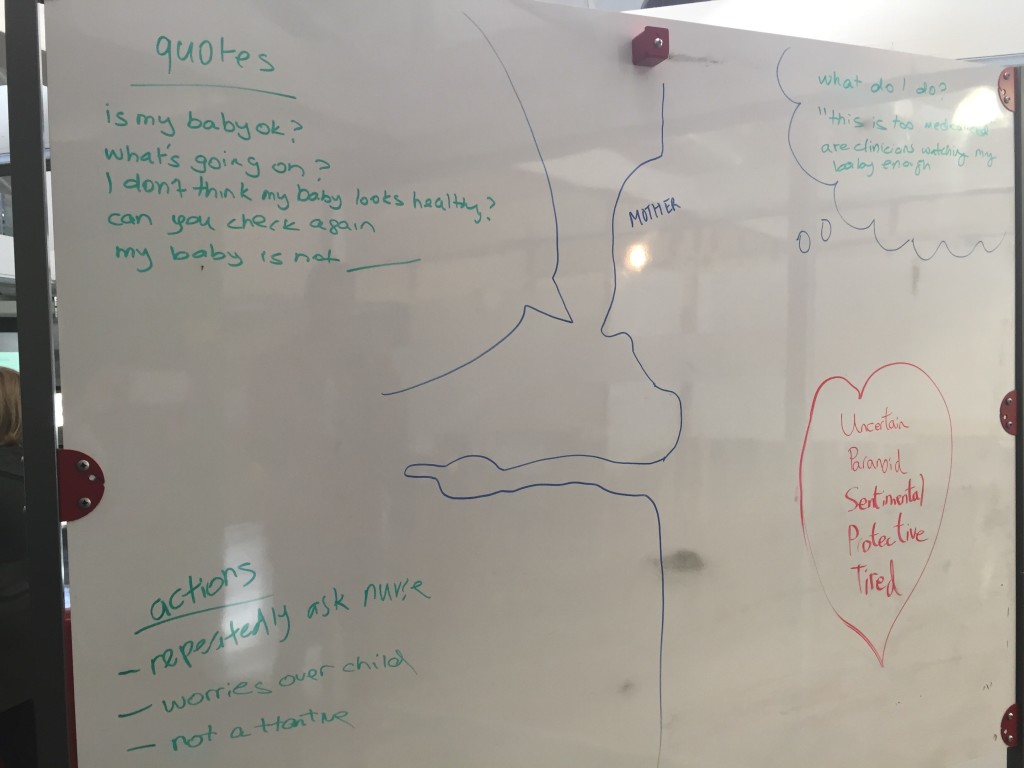 quotes
is my baby ok?
what's going on?
I don't think my baby looks healthy?
can you check again
my baby is not ______
MOTHER
what do I do?
"this is too
are clinicians watching my
baby enough
Uncertain
Paranoid
Sentimental
Protective
Tired
actions
- repeatedly ask nurse
- worries over child
- not attentive